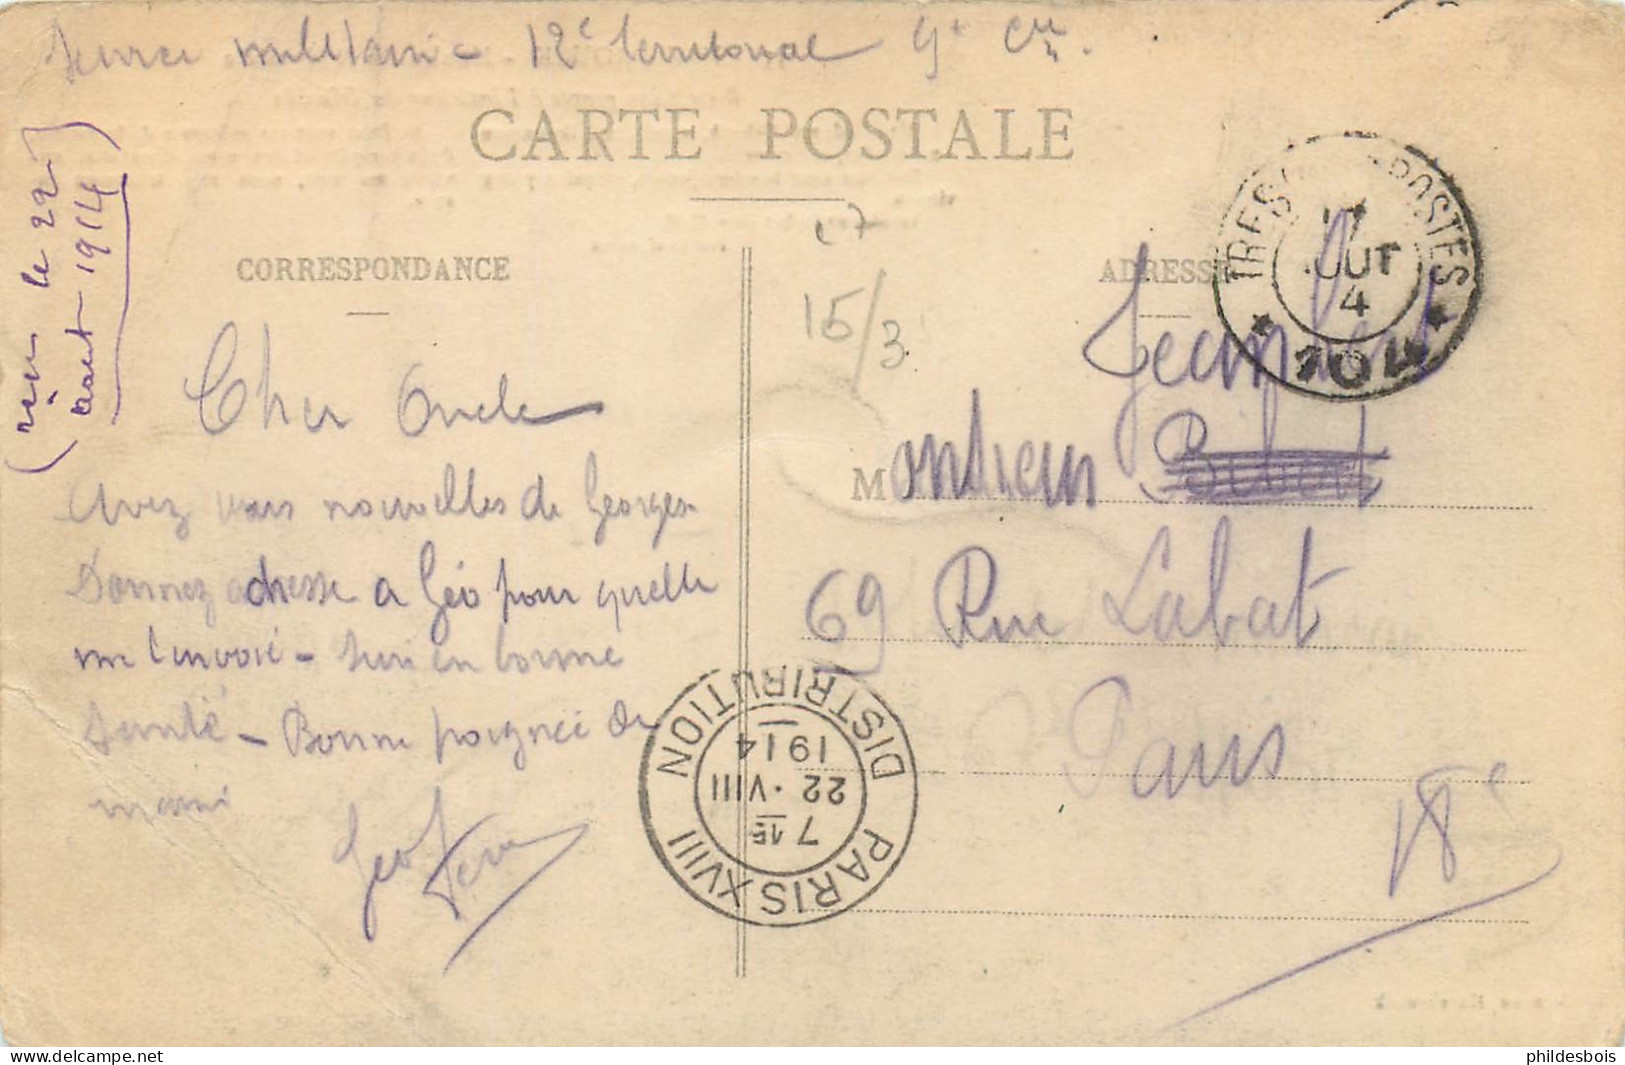 Service militaire - 12e territorial 9e Cie
CARTE POSTALE
(reçu le 22
aout 1914)
CORRESPONDANCE
ADRESSE
TRESOR POSTES
17
OUT
4
* 104 *
17
15/3
Cher Oncle
Avez vous nouvelles de Georges
Donnez adresse a Géo pour quelle
me l'envoie - suis en bonne
santé - Bonne poignée de
main
Geo
Monsieur
69 Rue Labat
Paris
18e
PARIS XVIII DISTRIBUTION
7 15
22 · VIII
1914
phildesbois